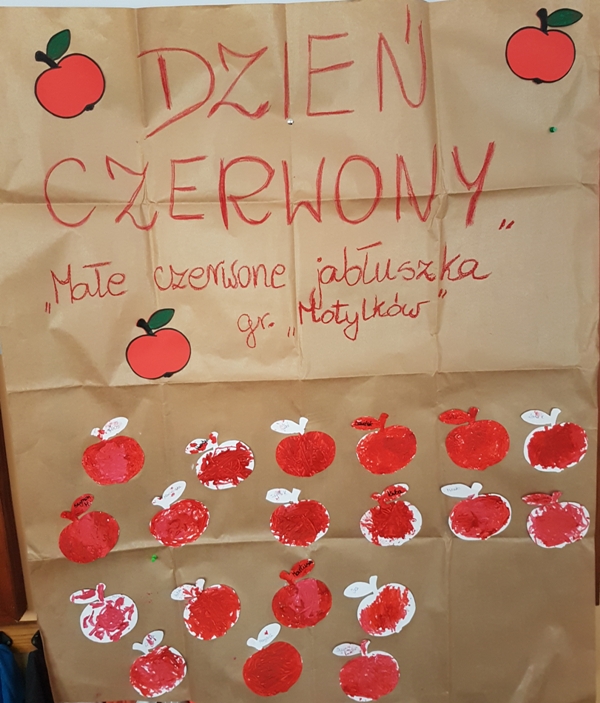 DZIEŃ
CZERWONY"
„Małe czerwone jabłuszka
gr. „Motylków"